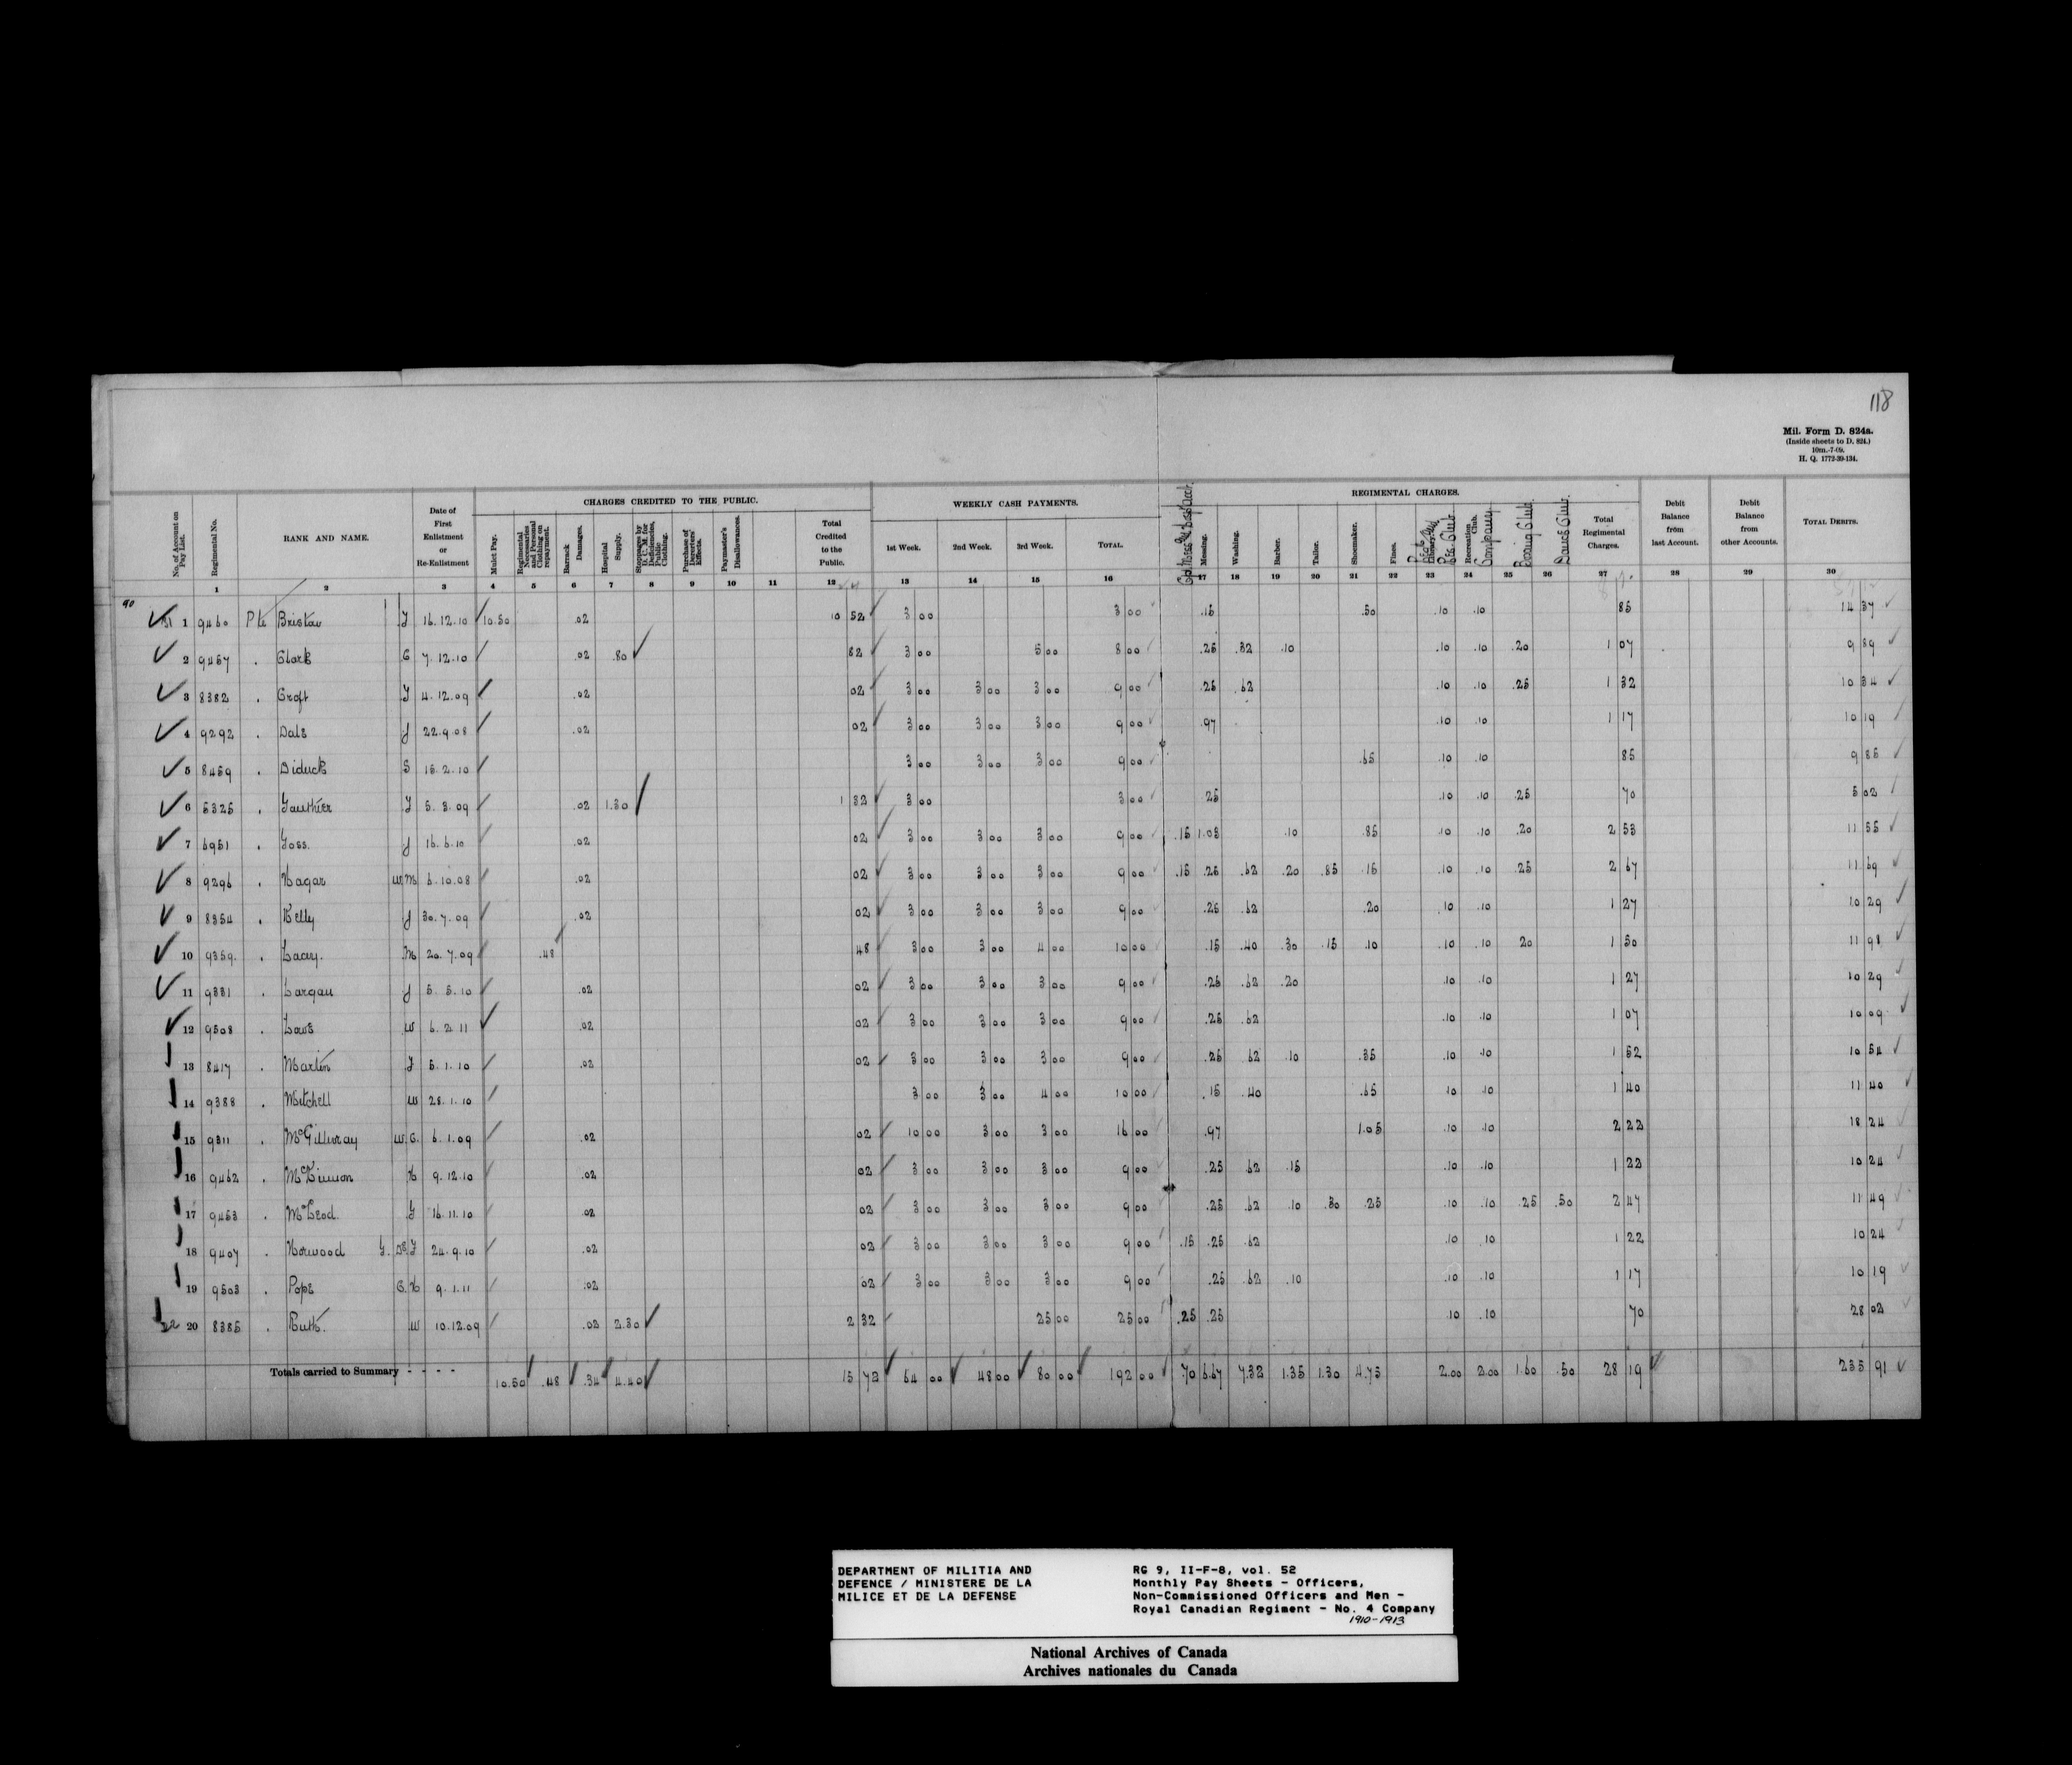 118
Mil. Form D. 824a.
(Inside sheets to D. 824.)
10m.-7-09.
H. Q. 1772-39-134.
CHARGES CREDITED TO THE PUBLIC. WEEKLY CASH PAYMENTS. REGIMENTAL CHARGES.
No. of Account on Pay List. Regimental No. RANK AND NAME. Date of First Enlistment or Re-Enlistment Mulct Pay. Regimental Necessaries and Personal Clothing on repayment. Barrack Damages. Hospital Supply. Stoppages by D. C. M. for Deficiencies, Public Clothing. Purchase of Deserters' Effects. Paymaster's Disallowances. Total Credited to the Public. 1st Week. 2nd Week. 3rd Week. TOTAL. Messing. Washing. Barber. Tailor. Shoemaker. Fines. Rec. Club. Recreation Club. Company Boxing Club. Dance Club. Total Regimental Charges. Debit Balance from last Account. Debit Balance from other Accounts. TOTAL DEBITS.
1 2 3 4 5 6 7 8 9 10 11 12 13 14 15 16 17 18 19 20 21 22 23 24 25 26 27 28 29 30
90
1 9460 Pte Bristow J 16.12.10 10.50 .02 10 52 3 00 3 00 .15 .50 .10 .10 85 14 37
2 9457 " Clark C 7.12.10 .02 .80 82 3 00 5 00 8 00 .25 .32 .10 .10 .10 .20 1 07 9 89
3 8382 " Croft J 4.12.09 .02 02 3 00 3 00 3 00 9 00 .25 .62 .10 .10 .25 1 32 10 34
4 9292 " Dale J 22.9.08 .02 02 3 00 3 00 3 00 9 00 .97 .10 .10 1 17 10 19
5 8459 " Diduck S 15.2.10 3 00 3 00 3 00 9 00 .65 .10 .10 85 9 85
6 5325 " Gauthier J 5.3.09 .02 1.30 1 32 3 00 3 00 25 .10 .10 .25 70 5 02
7 6951 " Goss J 16.6.10 .02 02 3 00 3 00 3 00 9 00 .15 1.03 .10 .85 .10 .10 .20 2 53 11 55
8 9296 " Hagar W.M. 6.10.08 .02 02 3 00 3 00 3 00 9 00 .15 .25 .62 .20 .85 .15 .10 .10 .25 2 67 11 69
9 8354 " Kelly J 30.7.09 .02 02 3 00 3 00 3 00 9 00 .25 .62 .20 .10 .10 1 27 10 29
10 9359 " Lacey. M 20.7.09 .48 48 3 00 3 00 4 00 10 00 .15 .40 .30 .15 .10 .10 .10 20 1 50 11 98
11 9331 " Largau J 5.5.10 .02 02 3 00 3 00 3 00 9 00 .25 .62 .20 .10 .10 1 27 10 29
12 9508 " Lowe W 6.2.11 .02 02 3 00 3 00 3 00 9 00 .25 .62 .10 .10 1 07 10 09
13 8417 " Martin J 5.1.10 .02 02 3 00 3 00 3 00 9 00 .25 .62 .10 .35 .10 .10 1 52 10 54
14 9388 " Mitchell W 25.1.10 3 00 3 00 4 00 10 00 .15 .40 .65 .10 .10 1 40 11 40
15 9311 " McGillivray W.C. 6.1.09 .02 02 10 00 3 00 3 00 16 00 .97 1.05 .10 .10 2 22 18 24
16 9462 " McKinnon H 9.12.10 .02 02 3 00 3 00 3 00 9 00 .25 .62 .15 .10 .10 1 22 10 24
17 9453 " McLeod. J 16.11.10 .02 02 3 00 3 00 3 00 9 00 .25 .62 .10 .30 .25 .10 .10 .25 .50 2 47 11 49
18 9407 " Norwood 24.9.10 .02 02 3 00 3 00 3 00 9 00 .15 .25 .62 .10 .10 1 22 10 24
19 9503 " Pope C.H. 9.1.11 .02 02 3 00 3 00 3 00 9 00 .25 .62 .10 .10 .10 1 17 10 19
22 20 8385 " Ruth. W 10.12.09 .02 2.30 2 32 25 00 25 00 .25 .25 .10 .10 70 28 02
Totals carried to Summary - - - - 10.50 .48 .34 4.40 15 72 64 00 48 00 80 00 192 00 .70 6.67 7.32 1.35 1.30 4.75 2.00 2.00 1.60 .50 28 19 235 91
DEPARTMENT OF MILITIA AND
DEFENCE / MINISTERE DE LA
MILICE ET DE LA DEFENSE
RG 9, II-F-8, vol. 52
Monthly Pay Sheets - Officers,
Non-Commissioned Officers and Men -
Royal Canadian Regiment - No. 4 Company
1910-1913
National Archives of Canada
Archives nationales du Canada